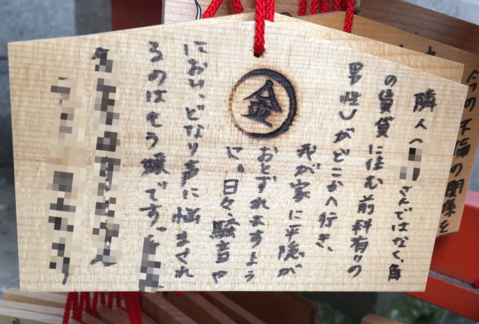 隣人(さんではなく、角
の賃貸に住む前科有りの
男性)がどこかへ行き、
我が家に平隠が
おとずれますよう
に。日々、騒音や
におい、どなり声に悩まされ
るのはもう嫌です。
金
今の不倫の関係を